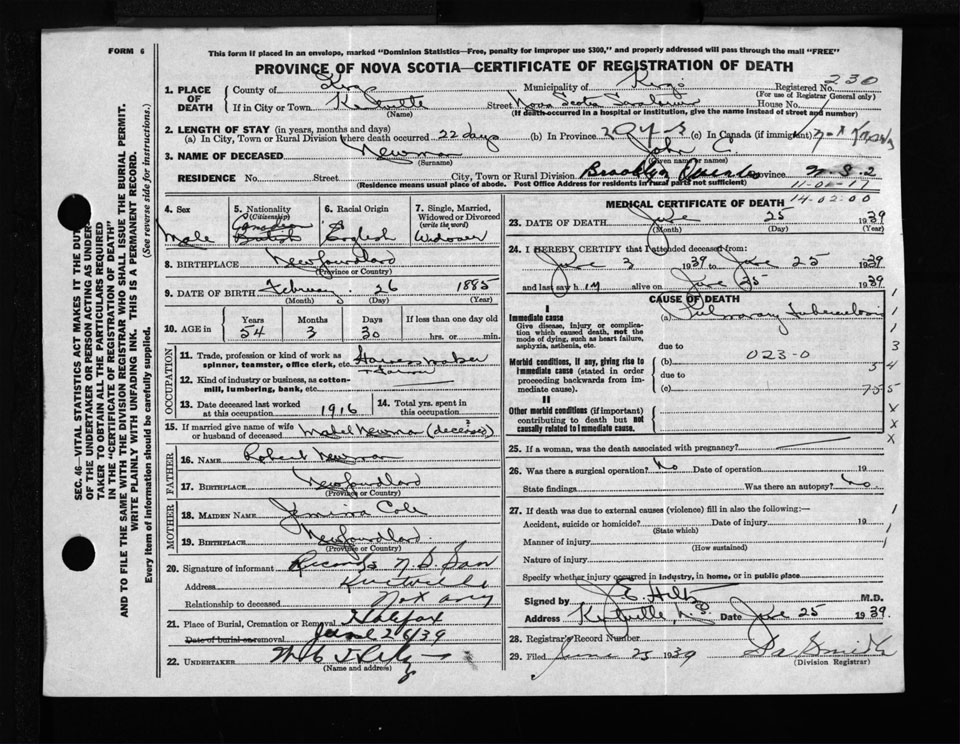 FORM 6
This form if placed in an envelope, marked "Dominion Statistics—Free, penalty for improper use $300," and properly addressed will pass through the mail "FREE"
PROVINCE OF NOVA SCOTIA—CERTIFICATE OF REGISTRATION OF DEATH
SEC. 46—VITAL STATISTICS ACT MAKES IT THE DUTY
OF THE UNDERTAKER OR PERSON ACTING AS UNDER-
TAKER TO OBTAIN ALL THE PARTICULARS REQUIRED
IN THE "CERTIFICATE OF REGISTRATION OF DEATH"
AND TO FILE THE SAME WITH THE DIVISION REGISTRAR WHO SHALL ISSUE THE BURIAL PERMIT.
WRITE PLAINLY WITH UNFADING INK. THIS IS A PERMANENT RECORD.
Every item of information should be carefully supplied. (See reverse side for instructions.)
1. PLACE OF DEATH
County of Kings Municipality of Kings Registered No. 230
(For use of Registrar General only)
If in City or Town Kentville Street Nova Scotia Sanatorium House No.
(Name) (If death occurred in a hospital or institution, give the name instead of street and number)
2. LENGTH OF STAY (in years, months and days)
(a) In City, Town or Rural Division where death occurred 22 days (b) In Province (c) In Canada (if immigrant)
3. NAME OF DECEASED Newman John C.
(Surname) (Given name or names)
RESIDENCE No. Street City, Town or Rural Division Brooklyn Queens Province N.S. 2
(Residence means usual place of abode. Post Office Address for residents in rural parts not sufficient)
11-01-17
14-02-00
4. Sex Male
5. Nationality (Citizenship) Canadian
6. Racial Origin English
7. Single, Married, Widowed or Divorced (write the word) Widower
8. BIRTHPLACE Newfoundland
(Province or Country)
9. DATE OF BIRTH February 26 1885
(Month) (Day) (Year)
10. AGE in Years 54 Months 3 Days 30 If less than one day old hrs. or min.
OCCUPATION
11. Trade, profession or kind of work as spinner, teamster, office clerk, etc.
12. Kind of industry or business, as cotton-mill, lumbering, bank, etc.
13. Date deceased last worked at this occupation 1916
14. Total yrs. spent in this occupation
15. If married give name of wife or husband of deceased Mabel Newman (deceased)
FATHER
16. NAME Robert Newman
17. BIRTHPLACE Newfoundland
(Province or Country)
MOTHER
18. MAIDEN NAME Jemima Cole
19. BIRTHPLACE Newfoundland
(Province or Country)
20. Signature of informant Records N. S. San
Address Kentville
Relationship to deceased Not any
21. Place of Burial, Cremation or Removal Halifax
Date of burial or removal June 26/39
22. UNDERTAKER
(Name and address)
MEDICAL CERTIFICATE OF DEATH
23. DATE OF DEATH June 25 1939
(Month) (Day) (Year)
24. I HEREBY CERTIFY that I attended deceased from:
June 3 1939 to June 25 1939
and last saw him alive on June 25 1939
CAUSE OF DEATH
I
Immediate cause
Give disease, injury or complication which caused death, not the mode of dying, such as heart failure, asphyxia, asthenia, etc.
(a) Pulmonary Tuberculosis
due to
Morbid conditions, if any, giving rise to immediate cause (stated in order proceeding backwards from immediate cause).
(b) 023-0
due to
(c)
II
Other morbid conditions (if important) contributing to death but not causally related to immediate cause.
25. If a woman, was the death associated with pregnancy?
26. Was there a surgical operation? No Date of operation 19
State findings Was there an autopsy? No
27. If death was due to external causes (violence) fill in also the following:—
Accident, suicide or homicide? Date of injury 19
(State which)
Manner of injury
(How sustained)
Nature of injury
Specify whether injury occurred in industry, in home, or in public place
Signed by J. E. Hiltz M.D.
Address Kentville, N.S. Date June 25 1939
28. Registrar's Record Number
29. Filed June 25 1939
(Division Registrar)